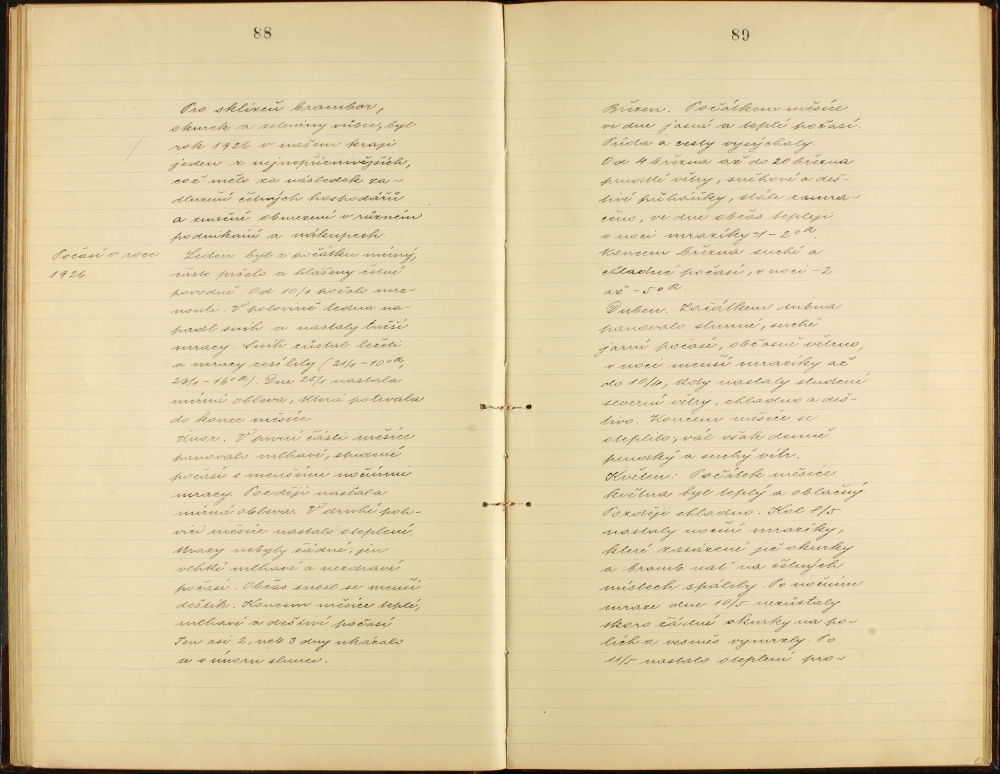 88
Pro sklizeň brambor,
okurek a zeleniny vůbec, byl
rok 1926 v našem kraji
jeden z nejnepříznivějších,
což mělo za následek za-
dlužení četných hospodářů
a značné obmezení v různém
podnikání a nákupech
Počasí v roce
1926
Leden byl z počátku mírný,
často pršelo a hlášeny četné
povodně. Od 10/1 počalo mrz-
nouti. V polovině ledna na-
padl sníh a nastaly tužší
mrazy. Sníh zůstal ležeti
a mrazy zesílily (21/1 -10°R,
23/1 -16°R). Dne 25/1 nastala
mírná obleva, která potrvala
do konce měsíce
Únor. V první části měsíce
panovalo mlhavé, studené
počasí s menšími nočními
mrazy. Později nastala
mírná obleva. V druhé polo-
vici měsíce nastalo oteplení.
Mrazy nebyly žádné, jen
vlhké mlhavé a nezdravé
počasí. Občas snesl se menší
deštík. Koncem měsíce teplé,
mlhavé a deštivé počasí
Jen asi 2, neb 3 dny ukázalo
se v únoru slunce.
89
Březen. Počátkem měsíce
ve dne jasné a teplé počasí.
Půda a cesty vysýchaly.
Od 4 března až do 20 března
prudké větry, sněhové a deš-
tivé přeháňky, stále zamra-
čeno, ve dne občas teplejí
v noci mrazíky -1 - 2°R.
Koncem března suché a
chladné počasí, v noci -2
až -5°R.
Duben. Začátkem dubna
panovalo slunné, suché
jarní počasí, občasně větrno,
v noci menší mrazíky až
do 10/4, kdy nastaly studené
severní větry, chladno a deš-
tivo. Koncem měsíce se
oteplilo, vál však denně
prudký a suchý vítr.
Květen: Počátek měsíce
května byl teplý a oblačný
Později chladno. Kol 8/5
nastaly noční mrazíky,
které zasázené již okurky
a bramb. nať na četných
místech spálily. Po nočním
mraze dne 10/5 nezůstaly
skoro žádné okurky na po-
lích a vesměs vymrzly. Po
11/5 nastalo oteplení pro-